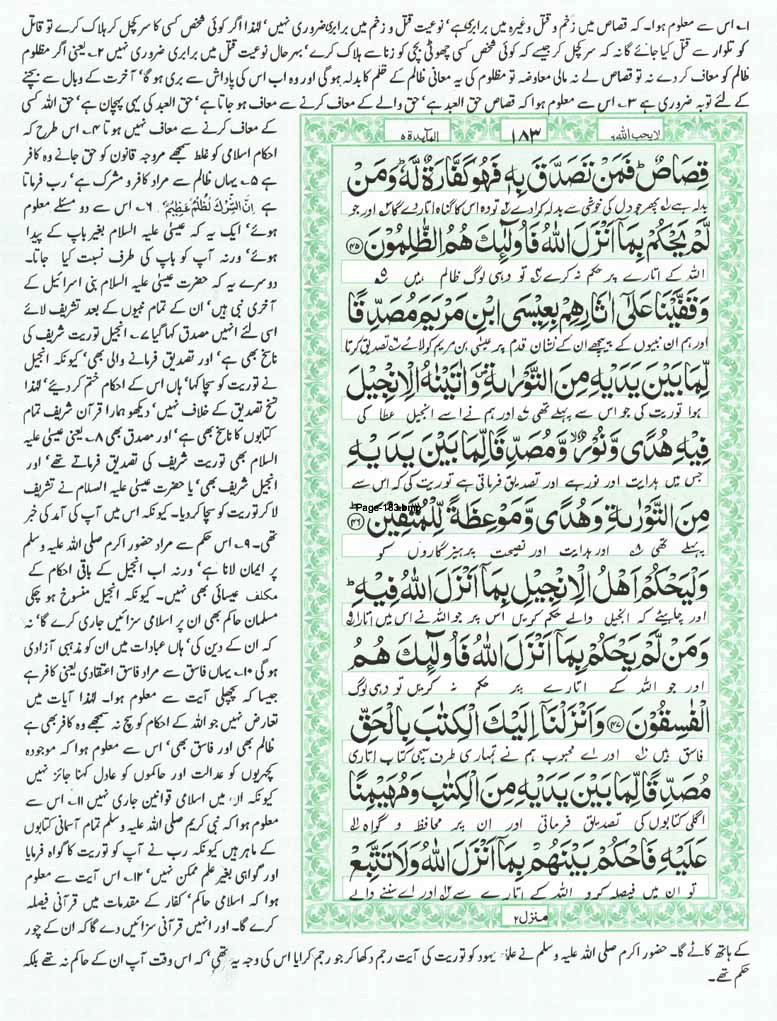 ۱؎ اس سے معلوم ہوا۔ کہ قصاص میں زخم و قتل وغیرہ میں برابری ہے‘ نوعیت قتل و زخم میں برابری ضروری نہیں‘ لہٰذا اگر کوئی شخص کسی کا سر کچل کر ہلاک کرے تو قاتل
کو تلوار سے قتل کیا جائے گا نہ کہ سر کچل کر جیسے کہ کوئی شخص کسی چھوٹی بچی کو زنا سے ہلاک کرے‘ بہرحال نوعیت قتل میں برابری ضروری نہیں ۲؎ یعنی اگر مظلوم
ظالم کو معاف کر دے نہ تو قصاص لے نہ مالی معاوضہ تو مظلوم کی یہ معافی ظالم کے ظلم کا بدلہ ہو گی اور وہ اب اس کی پاداش سے بری ہو گا‘ آخرت کے وبال سے بچنے
کے لئے توبہ ضروری ہے ۳؎ اس سے معلوم ہوا کہ قصاص حق العبد ہے‘ حق والے کے معاف کرنے سے معاف ہو جاتا ہے‘ حق العبد کی یہی پہچان ہے‘ حق اللہ کسی
لا یحب اللہ ۶
۱۸۳
المآیدۃ ۵
قِصَاصٌ ؕ فَمَنْ تَصَدَّقَ بِهٖ فَهُوَ كَفَّارَةٌ لَّهٗ ؕ وَمَنْ
بدلہ ہے ۱ پھر جو دل کی خوشی سے بدلہ کرا دے ۲ تو وہ اس کا گناہ اتار دے گا ۳ اور جو
لَّمْ يَحْكُمْ بِمَآ اَنْزَلَ اللّٰهُ فَاُولٰٓئِكَ هُمُ الظّٰلِمُوْنَ ﴿۴۵﴾
اللہ کے اتارے پر حکم نہ کرے ۴ تو وہی لوگ ظالم ہیں ۵
وَقَفَّيْنَا عَلٰٓى اٰثَارِهِمْ بِعِيْسَى ابْنِ مَرْيَمَ مُصَدِّقًا
اور ہم ان نبیوں کے پیچھے ان کے نشان قدم پر عیسٰی بن مریم کو لائے ۶ تصدیق کرتا
لِّمَا بَيْنَ يَدَيْهِ مِنَ التَّوْرٰىةِ ۪ وَاٰتَيْنٰهُ الْاِنْجِيْلَ
ہوا توریت کی جو اس سے پہلے تھی ۷ اور ہم نے اسے انجیل عطا کی
فِيْهِ هُدًى وَّنُوْرٌ ۙ وَّمُصَدِّقًا لِّمَا بَيْنَ يَدَيْهِ
جس میں ہدایت اور نور ہے اور تصدیق فرماتی ہے توریت کی کہ اس سے
مِنَ التَّوْرٰىةِ وَهُدًى وَّمَوْعِظَةً لِّلْمُتَّقِيْنَ ﴿۴۶﴾
Page-183.bmp
پہلے تھی ۸ اور ہدایت اور نصیحت پرہیزگاروں کو
وَلْيَحْكُمْ اَهْلُ الْاِنْجِيْلِ بِمَآ اَنْزَلَ اللّٰهُ فِيْهِ ؕ
اور چاہیئے کہ انجیل والے حکم کریں اس پر جو اللہ نے اس میں اتارا ۹
وَمَنْ لَّمْ يَحْكُمْ بِمَآ اَنْزَلَ اللّٰهُ فَاُولٰٓئِكَ هُمُ
اور جو اللہ کے اتارے پر حکم نہ کریں تو وہی لوگ
الْفٰسِقُوْنَ ﴿۴۷﴾ وَاَنْزَلْنَآ اِلَيْكَ الْكِتٰبَ بِالْحَقِّ
فاسق ہیں ۱۰ اور اے محبوب ہم نے تمہاری طرف سچی کتاب اتاری
مُصَدِّقًا لِّمَا بَيْنَ يَدَيْهِ مِنَ الْكِتٰبِ وَمُهَيْمِنًا
اگلی کتابوں کی تصدیق فرماتی اور ان پر محافظ و گواہ ۱۱
عَلَيْهِ فَاحْكُمْ بَيْنَهُمْ بِمَآ اَنْزَلَ اللّٰهُ وَلَا تَتَّبِعْ
تو ان میں فیصلہ کرو اللہ کے اتارے سے ۱۲ اور اے سننے والے
منزل ۲
کے معاف کرنے سے معاف نہیں ہوتا ۴؎ اس طرح کہ
احکام اسلامی کو غلط سمجھے مروجہ قانون کو حق جانے وہ کافر
ہے ۵؎ یہاں ظالم سے مراد کافر و مشرک ہے‘ رب فرماتا
ہے اِنَّ الشِّرْكَ لَظُلْمٌ عَظِيْمٌ ۶؎ اس سے دو مسئلے معلوم
ہوئے‘ ایک یہ کہ عیسٰی علیہ السلام بغیر باپ کے پیدا
ہوئے‘ ورنہ آپ کو باپ کی طرف نسبت کیا جاتا۔
دوسرے یہ کہ حضرت عیسٰی علیہ السلام بنی اسرائیل کے
آخری نبی ہیں‘ ان کے تمام نبیوں کے بعد تشریف لائے
اسی لئے انہیں مصدق کہا گیا ۷؎ انجیل توریت شریف کی
ناسخ بھی ہے‘ اور تصدیق فرمانے والی بھی‘ کیونکہ انجیل
نے توریت کو سچا کہا‘ ہاں اس کے احکام ختم کر دیئے‘ لہٰذا
نسخ تصدیق کے خلاف نہیں‘ دیکھو ہمارا قرآن شریف تمام
کتابوں کا ناسخ بھی ہے‘ اور مصدق بھی ۸؎ یعنی عیسٰی علیہ
السلام بھی توریت شریف کی تصدیق فرماتے تھے‘ اور
انجیل شریف بھی‘ یا حضرت عیسٰی علیہ السلام نے تشریف
لا کر توریت کو سچا کر دیا۔ کیونکہ اس میں آپ کی آمد کی خبر
تھی۔ ۹؎ اس حکم سے مراد حضور اکرم صلی اللہ علیہ وسلم
پر ایمان لانا ہے‘ ورنہ اب انجیل کے باقی احکام کے
مکلف عیسائی بھی نہیں۔ کیونکہ انجیل منسوخ ہو چکی
مسلمان حاکم بھی ان پر اسلامی سزائیں جاری کرے گا‘ نہ
کہ ان کے دین کی‘ ہاں عبادات میں ان کو مذہبی آزادی
ہو گی ۱۰؎ یہاں فاسق سے مراد فاسق اعتقادی یعنی کافر ہے
جیسا کہ پچھلی آیت سے معلوم ہوا۔ لہٰذا آیات میں
تعارض نہیں جو اللہ کے احکام کو سچ نہ سمجھے وہ کافر بھی ہے
ظالم بھی اور فاسق بھی‘ اس سے معلوم ہوا کہ موجودہ
کچہریوں کو عدالت اور حاکموں کو عادل کہنا جائز نہیں
کیونکہ ان میں اسلامی قوانین جاری نہیں ۱۱؎ اس سے
معلوم ہوا کہ نبی کریم صلی اللہ علیہ وسلم تمام آسمانی کتابوں
کے ماہر ہیں کیونکہ رب نے آپ کو توریت کا گواہ فرمایا
اور گواہی بغیر علم ممکن نہیں‘ ۱۲؎ اس آیت سے معلوم
ہوا کہ اسلامی حاکم‘ کفار کے مقدمات میں قرآنی فیصلہ
کرے گا۔ اور انہیں قرآنی سزائیں دے گا کہ ان کے چور
کے ہاتھ کاٹے گا۔ حضور اکرم صلی اللہ علیہ وسلم نے علماء یہود کو توریت کی آیت رجم دکھا کر جو رجم کرایا اس کی وجہ یہ تھی‘ کہ اس وقت آپ ان کے حاکم نہ تھے بلکہ
حکم تھے۔